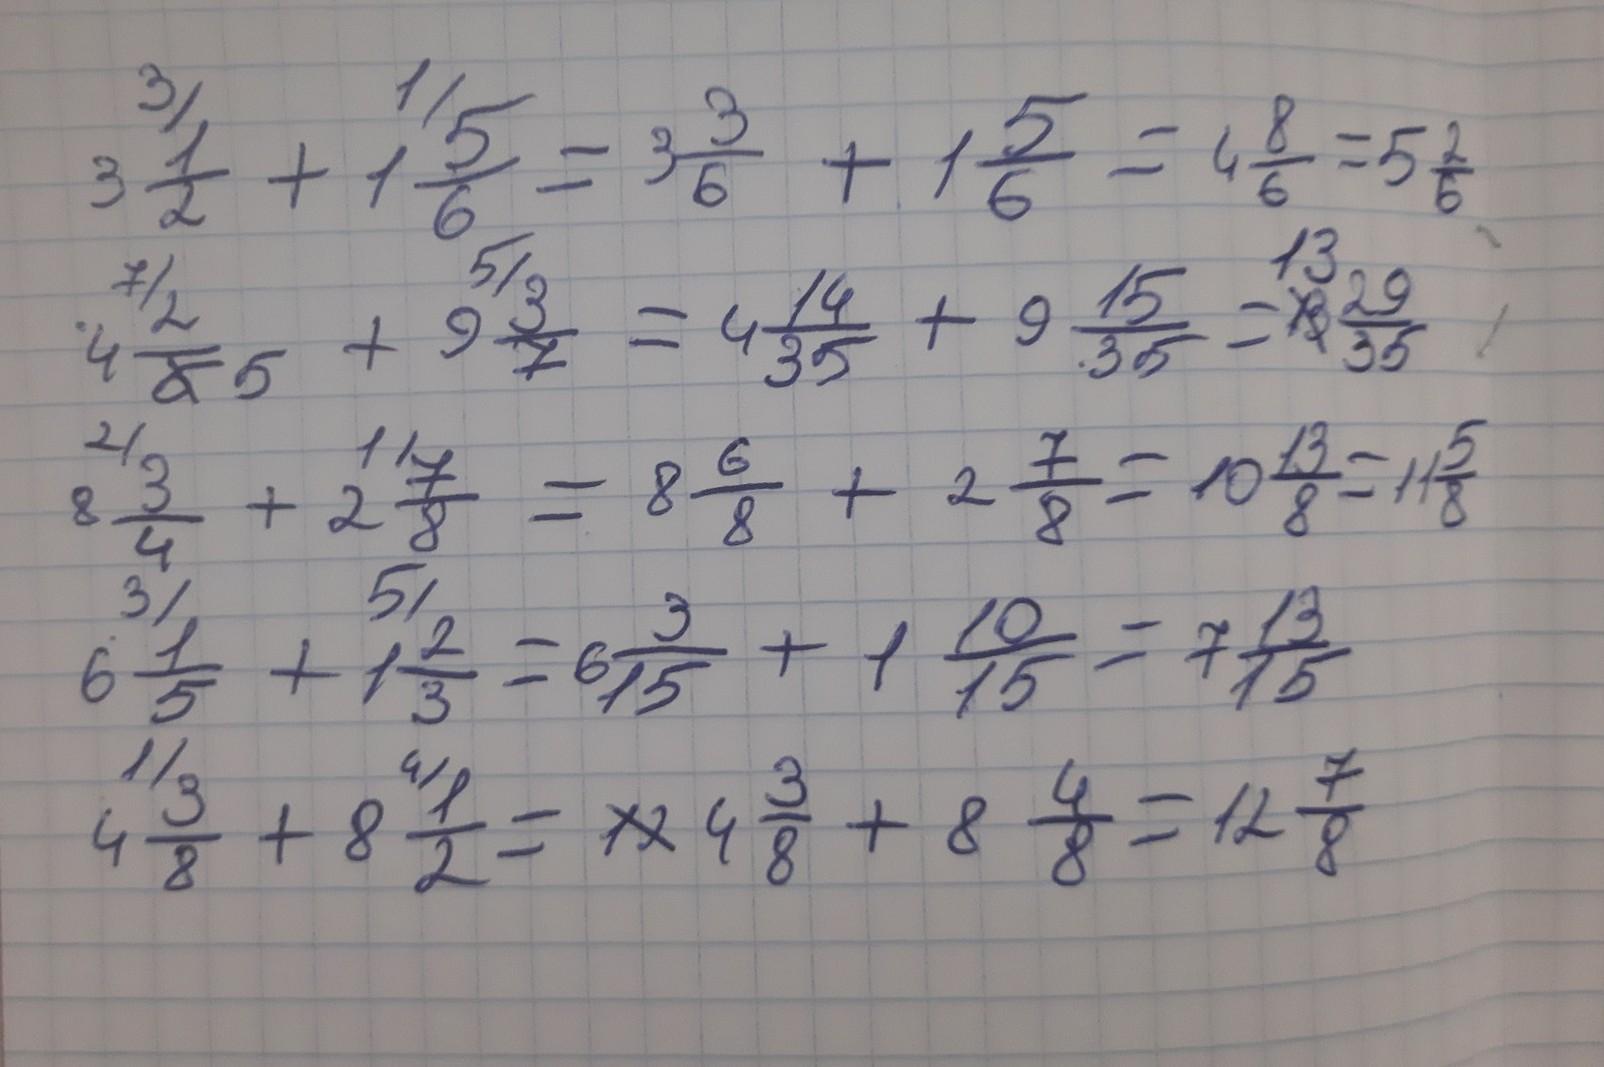 3 3/ 1/2 + 1 1/ 5/6 = 3 3/6 + 1 5/6 = 4 8/6 = 5 2/6
4 7/ 2/5 + 9 5/ 3/7 = 4 14/35 + 9 15/35 = 13 29/35
8 2/ 3/4 + 2 1/ 7/8 = 8 6/8 + 2 7/8 = 10 13/8 = 11 5/8
6 3/ 1/5 + 1 5/ 2/3 = 6 3/15 + 1 10/15 = 7 13/15
4 1/ 3/8 + 8 4/ 1/2 = 4 3/8 + 8 4/8 = 12 7/8